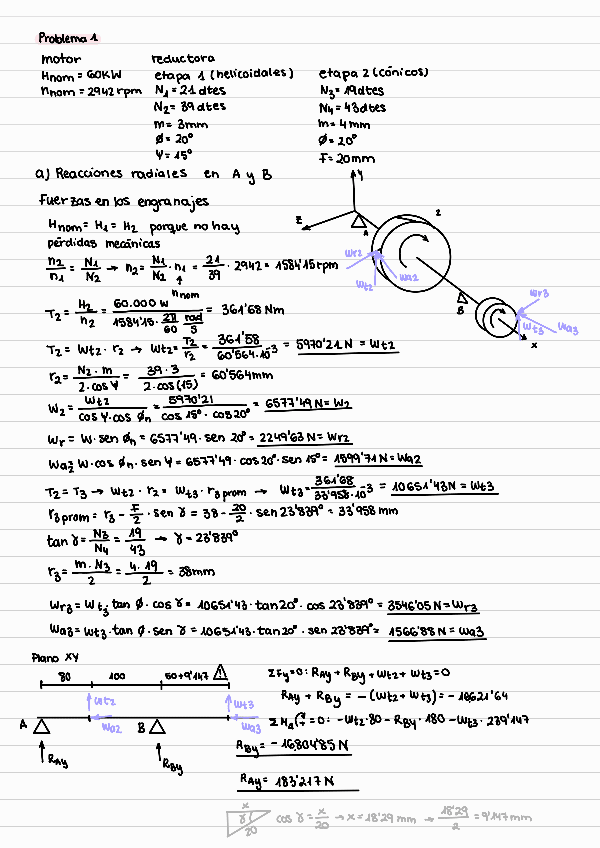 Problema 1
motor reductora
Hnom = 60KW etapa 1 (helicoidales) etapa 2 (cónicos)
nnom = 2942 rpm N1 = 21 dtes N3 = 19dtes
N2 = 39 dtes N4 = 43 dtes
m = 3mm m = 4 mm
Ø = 20° Ø = 20°
Ψ = 15° F = 20mm
a) Reacciones radiales en A y B
Fuerzas en los engranajes
Hnom = H1 = H2 porque no hay
pérdidas mecánicas
n2/n1 = N1/N2 → n2 = N1/N2 · n1 = 21/39 · 2942 = 1584'15 rpm
nnom
T2 = H2/n2 = 60.000 W / 1584'15 · 2π/60 rad/s = 361'68 Nm
T2 = Wt2 · r2 → Wt2 = T2/r2 = 361'58 / 60'564·10⁻³ = 5970'21 N = Wt2
r2 = N2 · m / 2 · cos Ψ = 39 · 3 / 2 · cos(15) = 60'564mm
W2 = Wt2 / cos Ψ · cos Øn = 5970'21 / cos 15° · cos 20° = 6577'49 N = W2
Wr = W · sen Øn = 6577'49 · sen 20° = 2249'63 N = Wr2
Wa2 = W · cos Øn · sen Ψ = 6577'49 · cos 20° · sen 15° = 1599'71 N = Wa2
T2 = T3 → Wt2 · r2 = Wt3 · r3prom → Wt3 = 361'68 / 33'958·10⁻³ = 10651'43 N = Wt3
r3prom = r3 - F/2 · sen γ = 38 - 20/2 · sen 23'839° = 33'958 mm
tan γ = N3/N4 = 19/43 → γ = 23'839°
r3 = m · N3 / 2 = 4 · 19 / 2 = 38mm
Wr3 = Wt3 · tan Ø · cos γ = 10651'43 · tan 20° · cos 23'839° = 3546'05 N = Wr3
Wa3 = Wt3 · tan Ø · sen γ = 10651'43 · tan 20° · sen 23'839° = 1566'88 N = Wa3
y
z
A
2
Wr2
Wa2
Wt2
B
Wr3
Wt3
Wa3
x
Plano XY
80 100 50+9'147
Wt2 Wt3
A Wa2 B Wa3
RAy RBy
ΣFy = 0: RAy + RBy + Wt2 + Wt3 = 0
RAy + RBy = - (Wt2 + Wt3) = - 16621'64
ΣMA = 0: - Wt2 · 80 - RBy · 180 - Wt3 · 239'147
RBy = - 16804'85 N
RAy = 183'217 N
x
γ
20
cos γ = x/20 → x = 18'29 mm → 18'29/2 = 9'147 mm